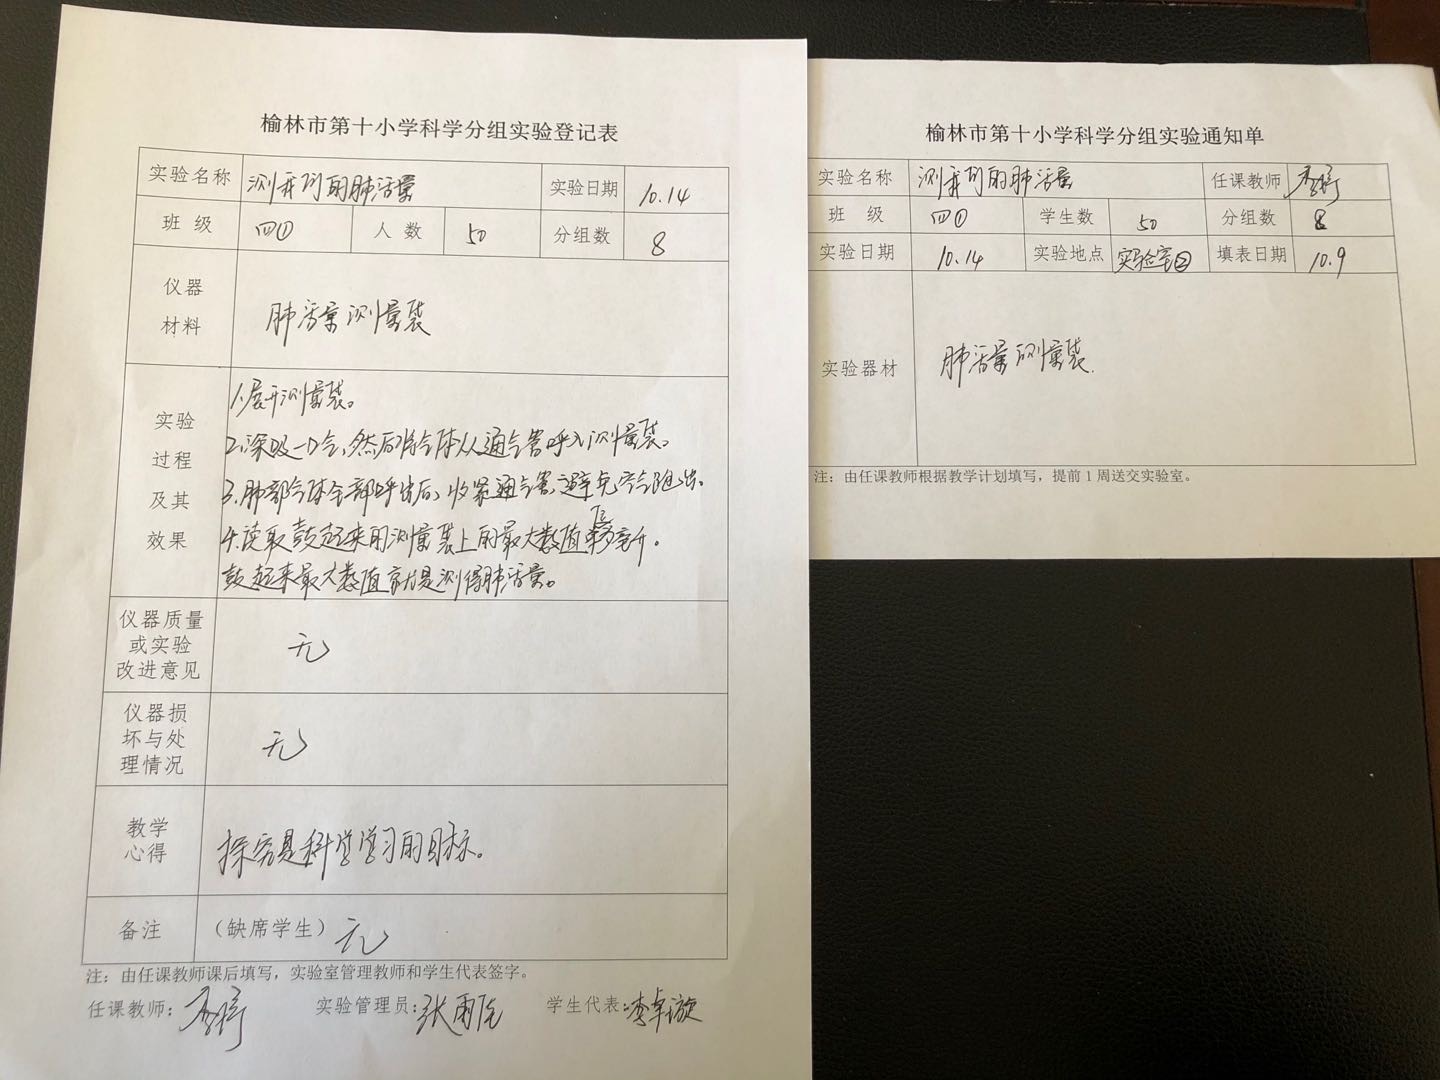 榆林市第十小学科学分组实验登记表
实验名称 测我们的肺活量 实验日期 10.14
班 级 四① 人 数 50 分组数 8
仪器
材料
肺活量测量袋
实验
过程
及其
效果
1.展开测量袋。
2.深吸一口气,然后将气体从通气管呼入测量袋。
3.肺部气体全部呼出后,收紧通气管,避免空气跑出。
4.读取鼓起来的测量袋上的最大数值 毫升。
鼓起来最大数值就是测得肺活量。
仪器质量
或实验
改进意见
无
仪器损
坏与处
理情况
无
教学
心得
探究是科学学习的目标。
备注 (缺席学生) 无
注:由任课教师课后填写,实验室管理教师和学生代表签字。
任课教师: 实验管理员:张雨 学生代表:李卓漩
榆林市第十小学科学分组实验通知单
实验名称 测我们的肺活量 任课教师
班 级 四① 学生数 50 分组数 8
实验日期 10.14 实验地点 实验室② 填表日期 10.9
实验器材 肺活量测量袋.
注:由任课教师根据教学计划填写,提前 1 周送交实验室。